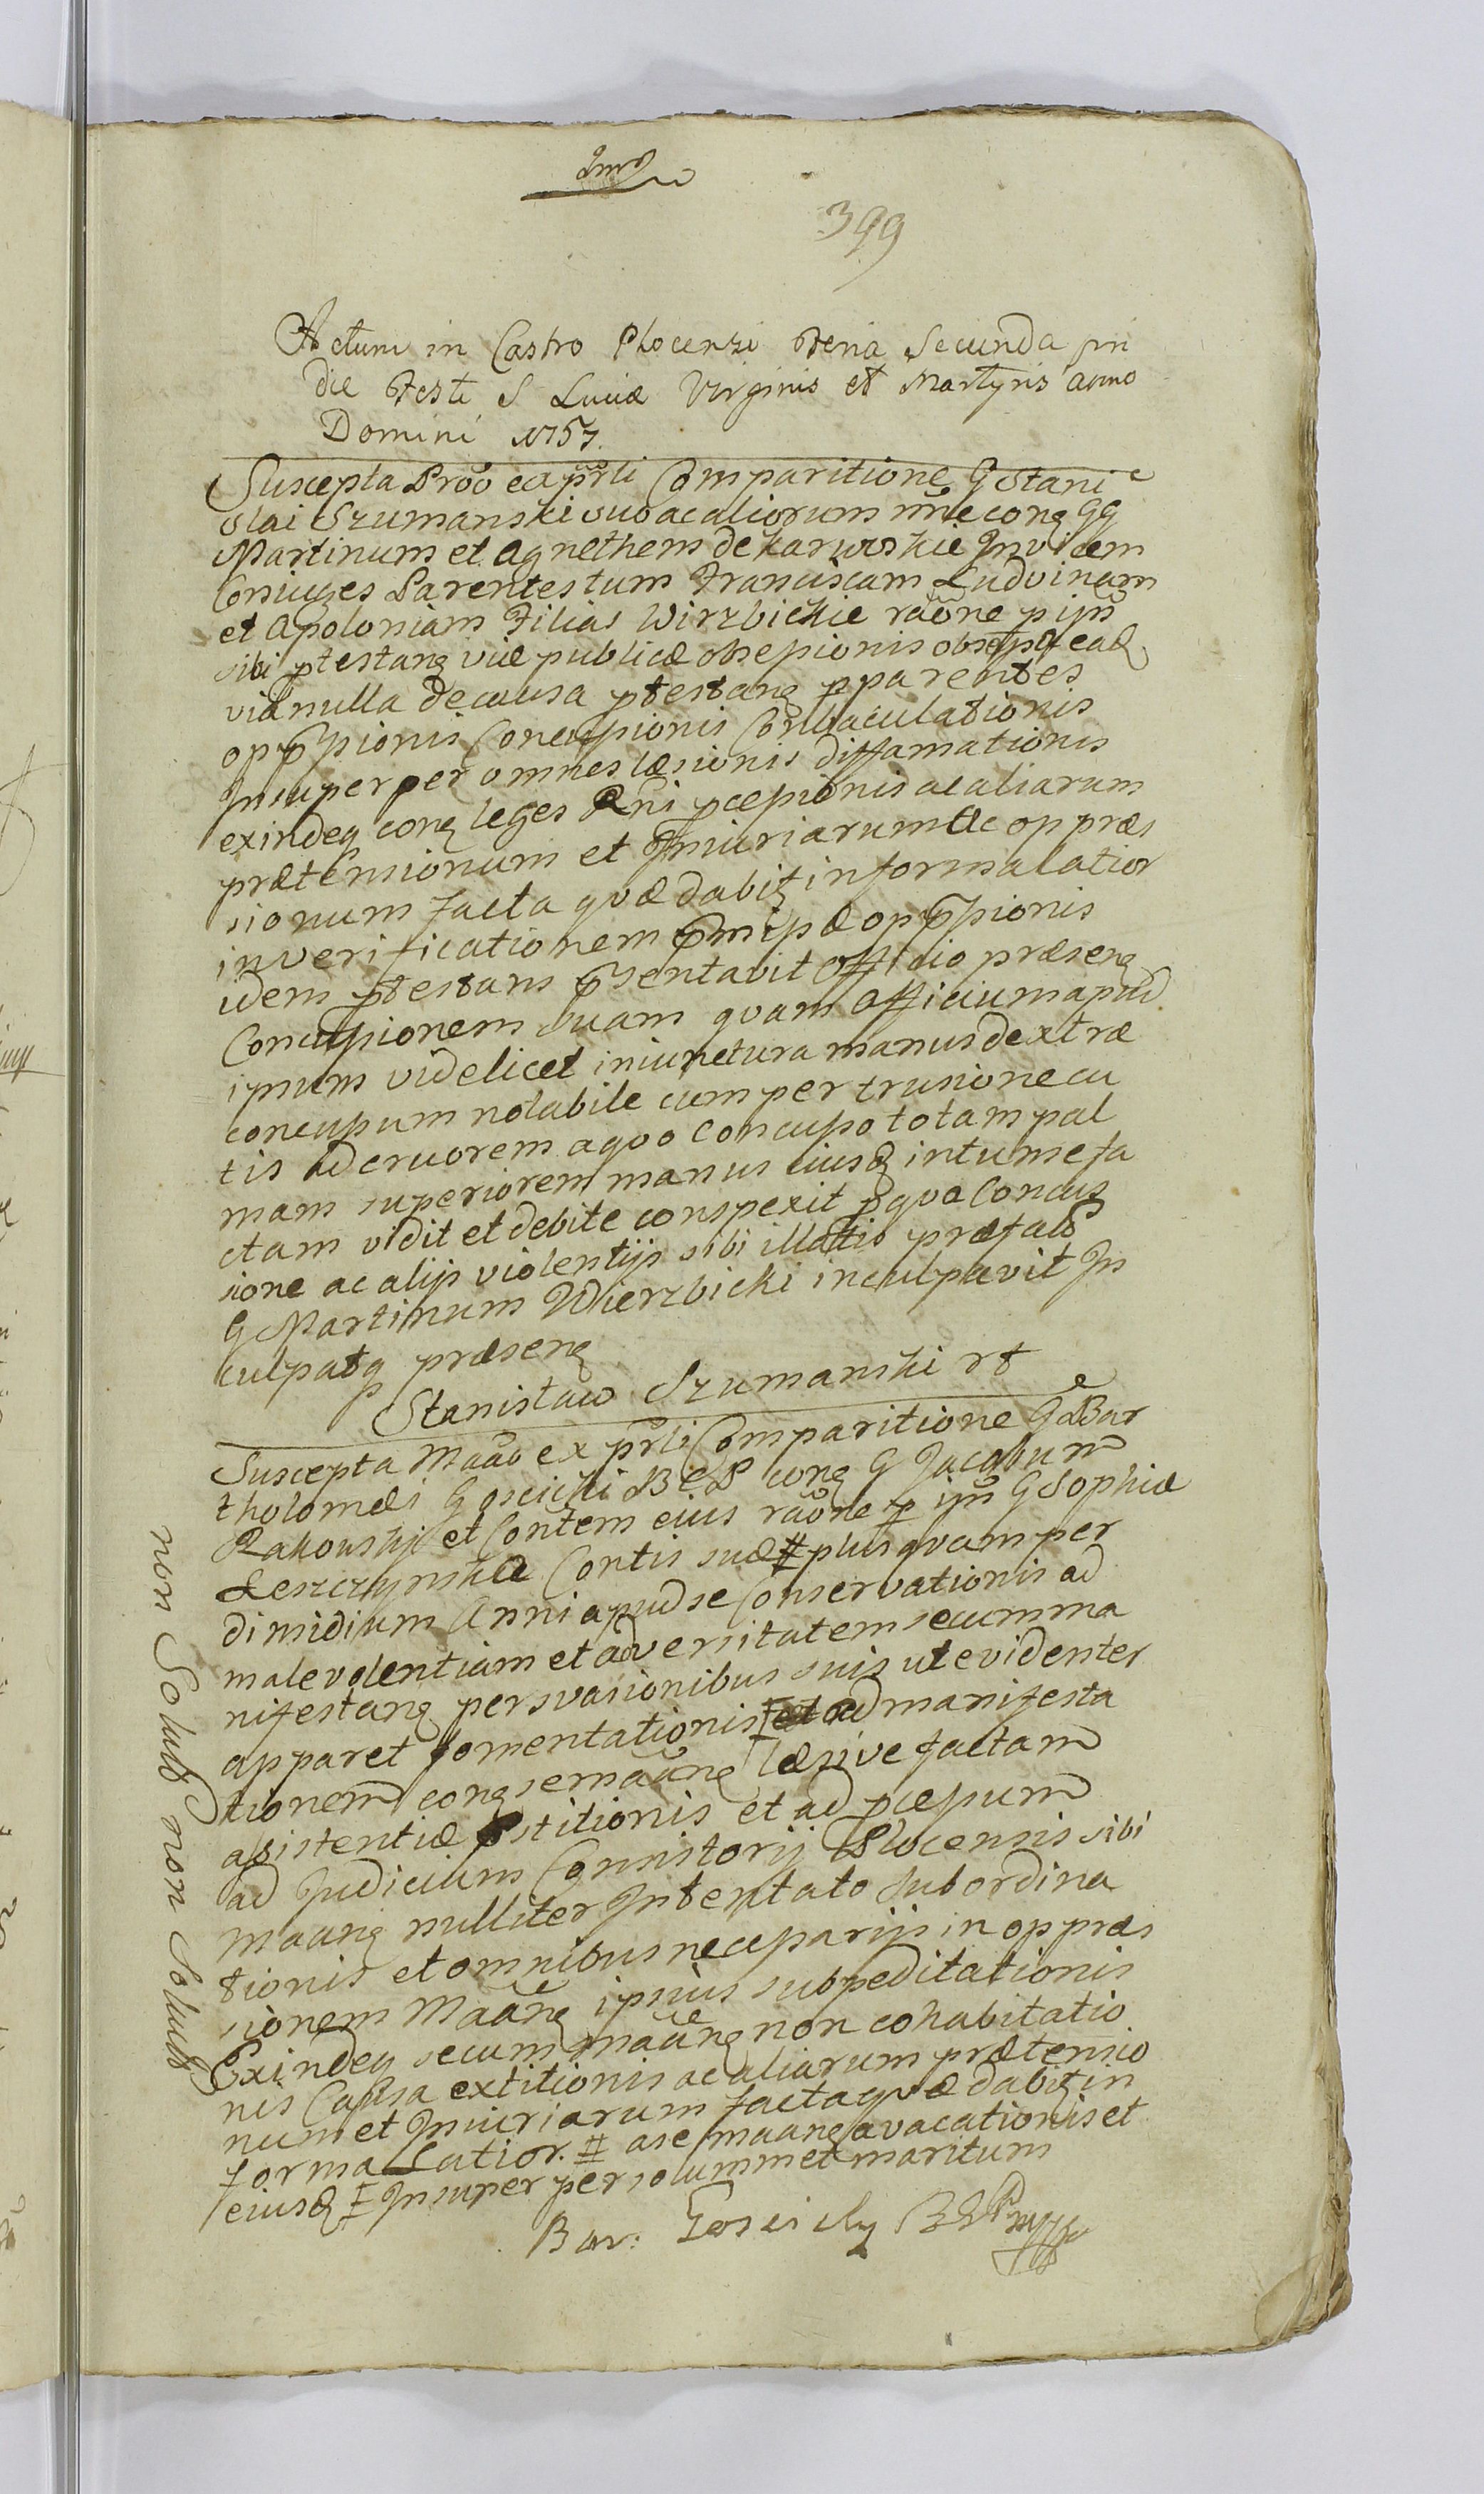 399
Actum in Castro Plocensi Feria Secunda pri
die Festi S Luciæ Virginis et Martyris anno
Domini 1757.
Suscepta Prõo ex pñrli Comparitione G Stani
slai Szumanski suo ac aliorum nñe conq GG
Martinum et Agnethem de Karwoskie Invicem
Coniuges Parentes tum Franciscam Ludvinam
et Apoloniam Filias Wirzbickie raõne p ijñ
sibi ptestanq viæ publicæ obsessionis
via nulla de causa ptestanq p parentes
oppressionis Concussionis Conbaculationis
Insuper per omnes læsionis diffamationis
exindeq conq leges Rñi pcessionis ac aliarum
prætensionum et Iniuriarum ac oppræs
sionum facta quæ dabit in forma latior
in verificationem præmissæ oppressionis
idem ptestans præsentavit Officio præsenq
Concussionem suam quam Officium apud
ipsum videlicet in iunctura manus dextræ
concussum notabile cum pertrusione cu
tis ad cruorem a quo concusso totam pal
mam superiorem manus eiusq intumefa
ctam vidit et debite conspexit p qua Concus
sione ac alijs violentijs sibi illatis præfatũ
G Martinum Wierzbicki inculpavit In
culpatq præsenq
Stanisław Szumanski
Suscepta Maão ex pñrli Comparitione G Bar
tholomæi Gosicki B C P conq G Jacobum
Rakowskj et Contem eius raõne p ijñ G Sophiæ
Leszczynskæ Contis suæ # plus quam per
dimidium Anni apud se Conservationis ad
malevolentiam et adversitatem secum ma
nifestanq persvasionibus suis ut evidenter
apparet fomentationis et ad manifesta
tionem conq se maãnq læsive factam
assistentiæ præstitionis et ad pcessum
ad Judicium Consistorij Plocensis sibi
maanq nulliter Intentato subordina
tionis et omnibus necessarijs in oppræs
sionem Maãnq ipsius subpeditationis
Exindeq secum maãnq non cohabitatio
nis Causa extitionis ac aliarum prætensio
num et Iniuriarum facta quæ dabit in
forma Latior. # a se maanq avacationis et
eiusq Insuper per solummet maritum
Bar: Gosicky
non Solutũ non Solutũ